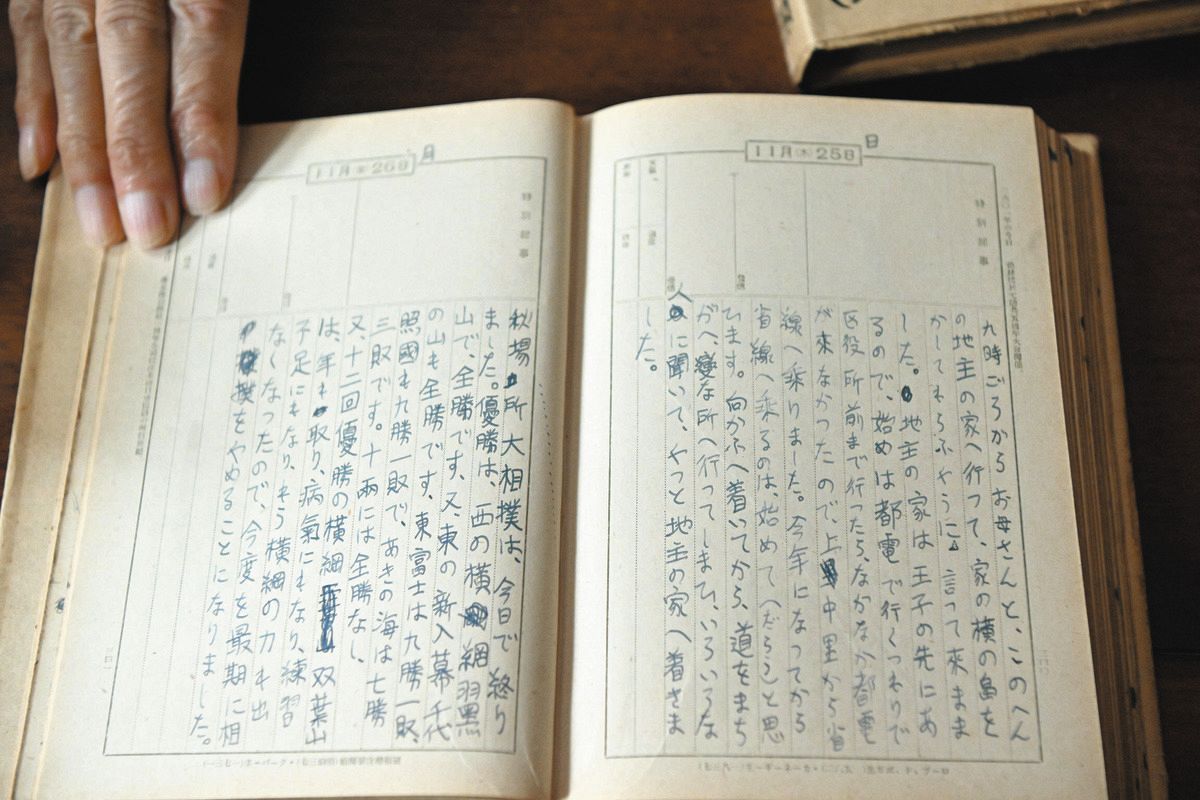 日
11月(木)25日
特別記事
九時ごろからお母さんと、このへん
の地主の家へ行って、家の横の畠を
かしてもらふやうに言って来まま
した。地主の家は王子の先にあ
るので、始めは都電で行くつもりで
区役所前まで行ったら、なかなか都電
が來なかったので、上中里から省
線へ乗りました。今年になってから
省線へ乗るのは、始めて(だらう)と思
ひます。向かふへ着いてから、道をまち
がへ、変な所へ行ってしまひ、いろいろな
人に聞いて、やっと地主の家へ着きま
した。
月
11月(金)26日
特別記事
秋場所大相撲は、今日で終り
ました。優勝は、西の横綱羽黒
山で、全勝です、又、東の新入幕千代
の山も全勝です、東富士は九勝一敗、
照國も九勝一敗で、あきの海は七勝
三敗です。十両には全勝なし、
又、十二回優勝の横綱双葉山
は、年も取り、病氣にもなり、練習
不足にもなり、もう横綱の力も出
なくなったので、今度を最期に相
撲をやめることになりました。